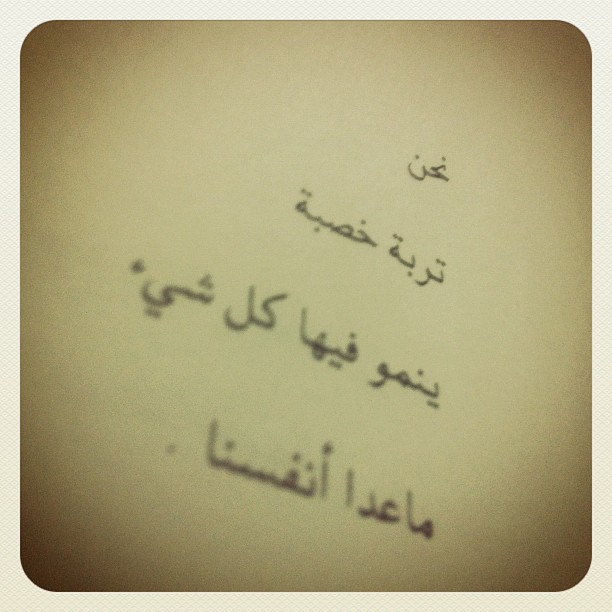 نحن
تربة خصبة
ينمو فيها كل شيء
ماعدا أنفسنا .